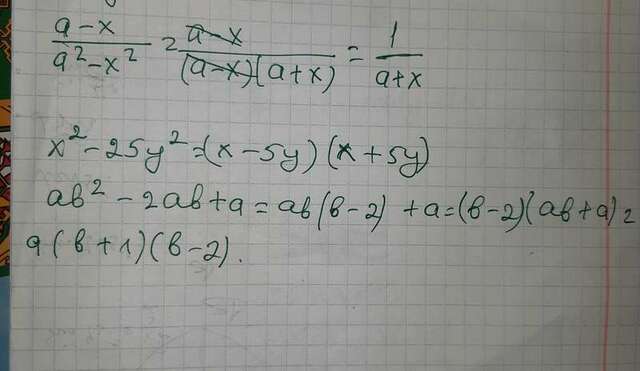 a-x/a²-x² = a-x/(a-x)(a+x) = 1/a+x
x²-25y²=(x-5y)(x+5y)
aв²-2aв+a=aв(в-2)+a=(в-2)(aв+a)=
a(в+1)(в-2).